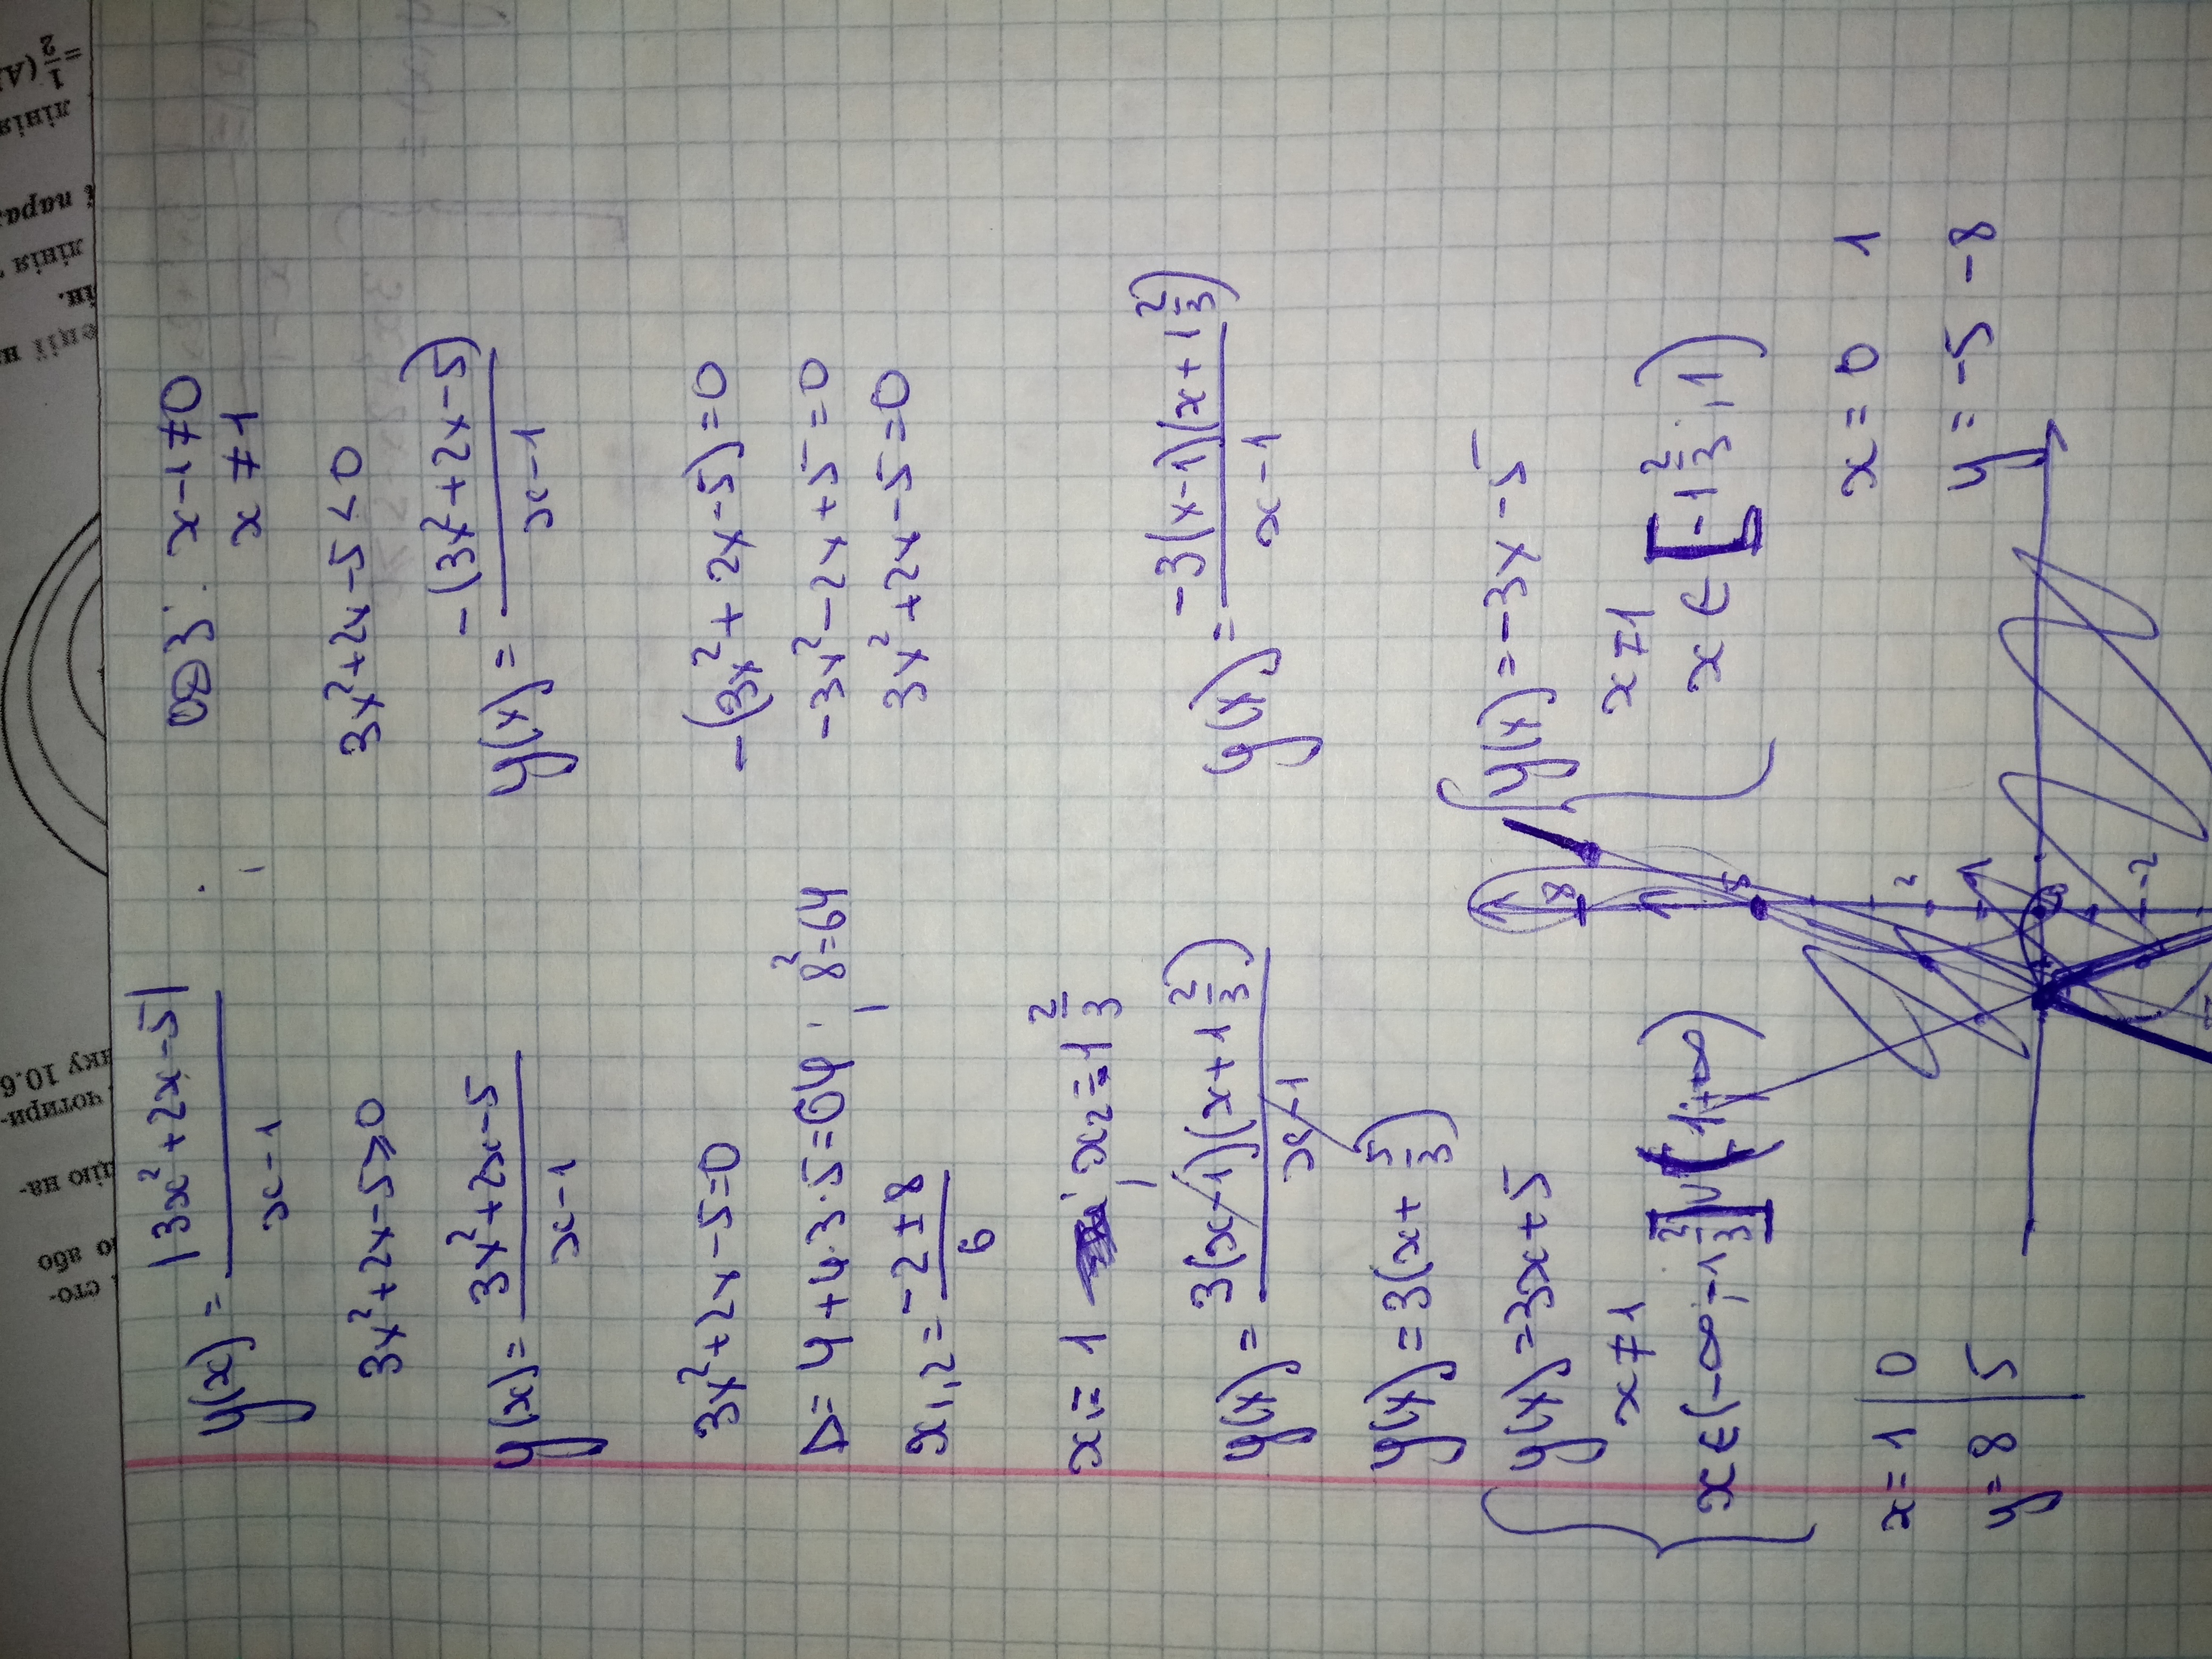 y(x) = |3x²+2x-5| / x-1
ОДЗ: x-1≠0
x≠1
3x²+2x-5≥0
3x²+2x-5<0
y(x) = 3x²+2x-5 / x-1
y(x) = -(3x²+2x-5) / x-1
3x²+2x-5=0
-(3x²+2x-5)=0
D=4+4·3·5=64; 8²=64
-3x²-2x+5=0
x₁,₂ = -2±8 / 6
3x²+2x-5=0
x₁=1; x₂=-1 2/3
y(x) = 3(x-1)(x+1 2/3) / x-1
y(x) = -3(x-1)(x+1 2/3) / x-1
y(x)=3(x+5/3)
y(x)=3x+5
x≠1
x∈(-∞;-1 2/3]∪(1;+∞)
y(x)=-3x-5
x≠1
x∈[-1 2/3;1)
x=1 0
y=8 5
x=0 1
y=-5 -8
8
5
2
-2
y
=1/2 (A
лінія
і пара
лінія
ії н
чотири-
нку 10.6
або
сто-